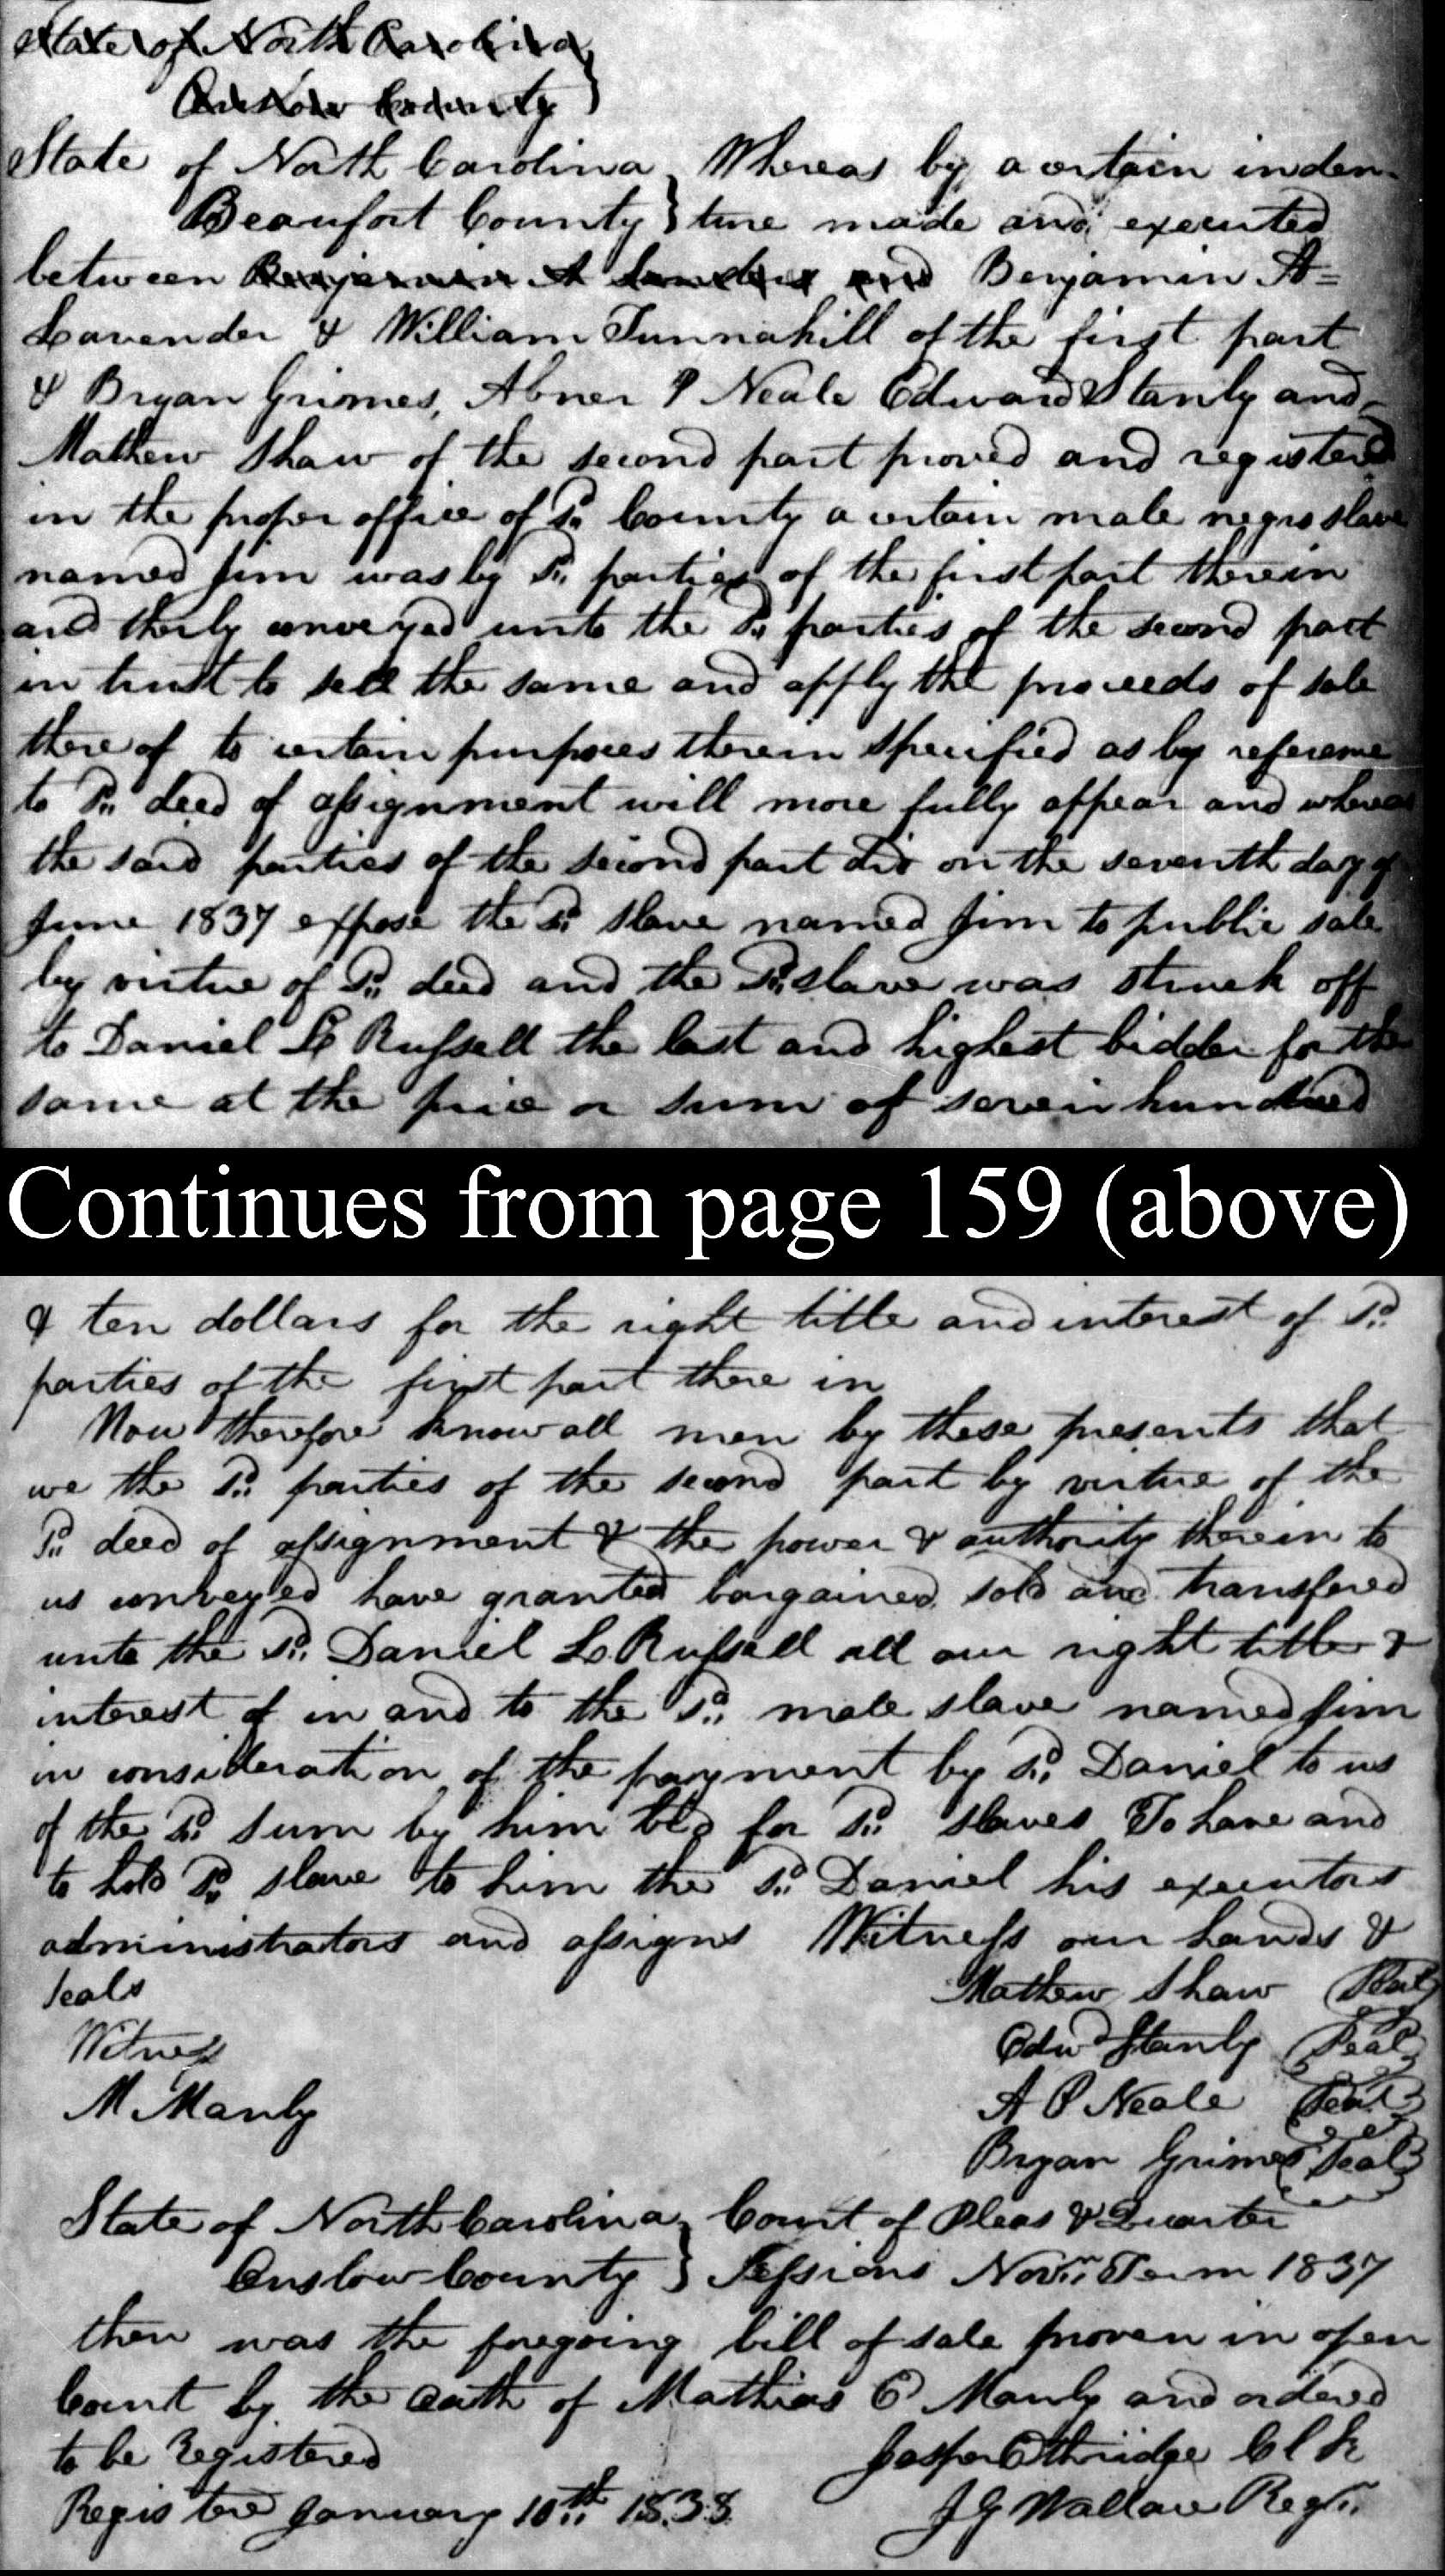 State of North Carolina
Onslow County }
State of North Carolina } Whereas by a certain inden-
Beaufort County } ture made and executed
between Benjamin A Lavender and Benjamin A=
Lavender & William Tunnahill of the first part
& Bryan Grimes, Abner P Neale Edward Stanly and
Mathew Shaw of the second part proved and registered
in the proper office of Sd. County a certain male negro slave
named Jim was by Sd. parties of the first part therein
and therby conveyed unto the Sd. parties of the second part
in trust to sell the same and apply the proceeds of sale
there of to certain purposes therein specified as by referense
to Sd. deed of assignment will more fully appear and whereas
the said parties of the second part did on the seventh day of
June 1837 expose the Sd. slave named Jim to public sale
by virtue of Sd. deed and the Sd. slave was struck off
to Daniel L Russell the last and highest bidder for the
same at the price or sum of seven hundred
Continues from page 159 (above)
& ten dollars for the right title and interest of Sd.
parties of the first part there in
Now therefore know all men by these presents that
we the Sd. parties of the second part by virtue of the
Sd. deed of assignment & the power & authority therein to
us conveyed have granted bargained sold and transfered
unto the Sd. Daniel L Russell all our right title &
interest of in and to the Sd. male slave named Jim
in consideration of the payment by Sd. Daniel to us
of the Sd. sum by him bid for Sd. slaves To have and
to hold Sd. slave to him the Sd. Daniel his executors
administrators and assigns Witness our hands &
seals
Mathew Shaw (Seal)
Witness
Edwd Stanly (Seal)
M Manly
A P Neale (Seal)
Bryan Grimes (Seal)
State of North Carolina } Court of Pleas & Quarter
Onslow County } Sessions Novr. Term 1837
then was the foregoing bill of sale proven in open
Court by the oath of Mathias E Manly and ordered
to be Registered
Jasper Ethridge Clk
Registered January 10th 1838
J G Wallace Regtr.